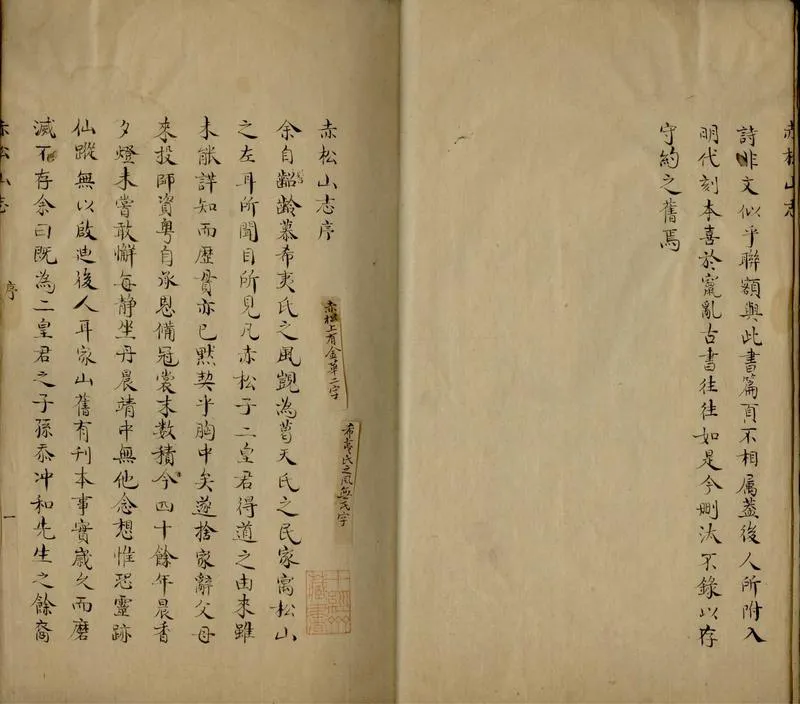 赤松山志
詩非文似乎聯額與此書篇頁不相属蓋後人所附入
明代刻本喜於竄亂古書往往如是今刪汰不錄以存
守約之舊焉
赤松山志序
赤松上有金華二字
希夷氏之風無氏字
余自齠齡慕希夷氏之風覬為葛天氏之民家寓松山
之左耳所聞目所見凡赤松子二皇君得道之由來雖
未能詳知而歷貫亦已黙契乎胸中矣遂捨家辭父母
來投師資粤自承恩備冠裳末数積今四十餘年晨香
夕燈未嘗敢懈每静坐丹晨靖中無他念想惟恐靈跡
仙蹤無以啟迪後人耳家山舊有刊本事實歲久而磨
滅不存余曰既為二皇君之子孫忝冲和先生之餘裔
赤松山志
序
一